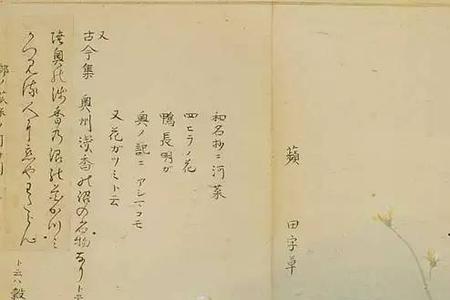 蘋 田字草
和名抄ニ 河菜
四ヒラノ花
鴨長明ガ
奥ノ記ニ アシマコモ
又花ガツミト云
又
古今集 奥州浅香の沼の名物なりト
陸奥の浅香乃沼の花かつミ
かつみる人に恋やわたらん